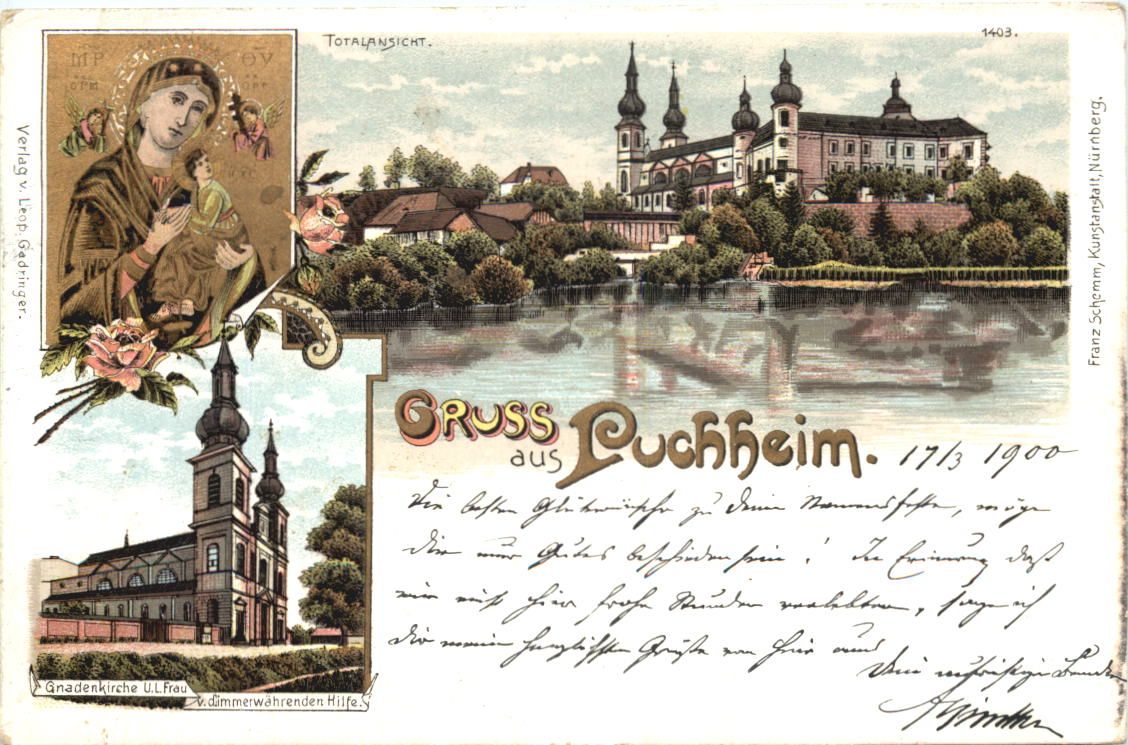 TOTALANSICHT.
1403.
ΜΡ ΘΥ
Verlag v. Leop. Gadringer.
Franz Schemm, Kunstanstalt, Nürnberg.
GRUSS
aus Puchheim. 17/3 1900
Die besten Glückwünsche zu Deinem Namensfeste, möge
Dir nur Gutes beschieden sein! In Erinnerung daß
wir einst hier frohe Stunden verlebten, sage ich
Dir meine herzlichsten Grüße von hier aus
Dein aufrichtiger
Gnadenkirche U.L. Frau
v. d. immerwährenden Hilfe.